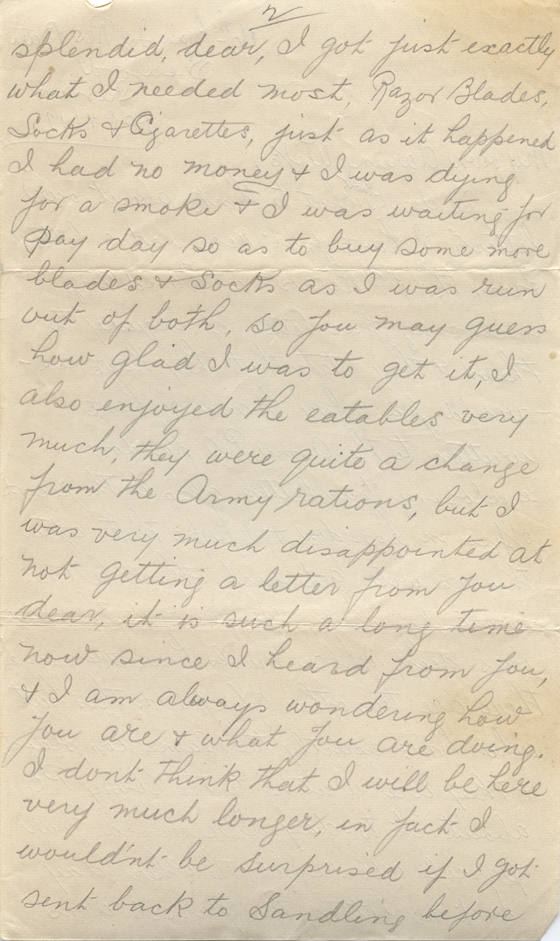 2
splendid, dear, I got just exactly
what I needed most, Razor Blades,
Socks & Cigarettes, just as it happened
I had no money & I was dying
for a smoke & I was waiting for
pay day so as to buy some more
blades & Socks as I was run
out of both, so you may guess
how glad I was to get it, I
also enjoyed the eatables very
much, they were quite a change
from the Army rations, but I
was very much disappointed at
not getting a letter from you
dear, it is such a long time
now since I heard from you,
& I am always wondering how
you are & what you are doing.
I dont think that I will be here
very much longer, in fact I
would'nt be surprised if I got
sent back to Sandling before